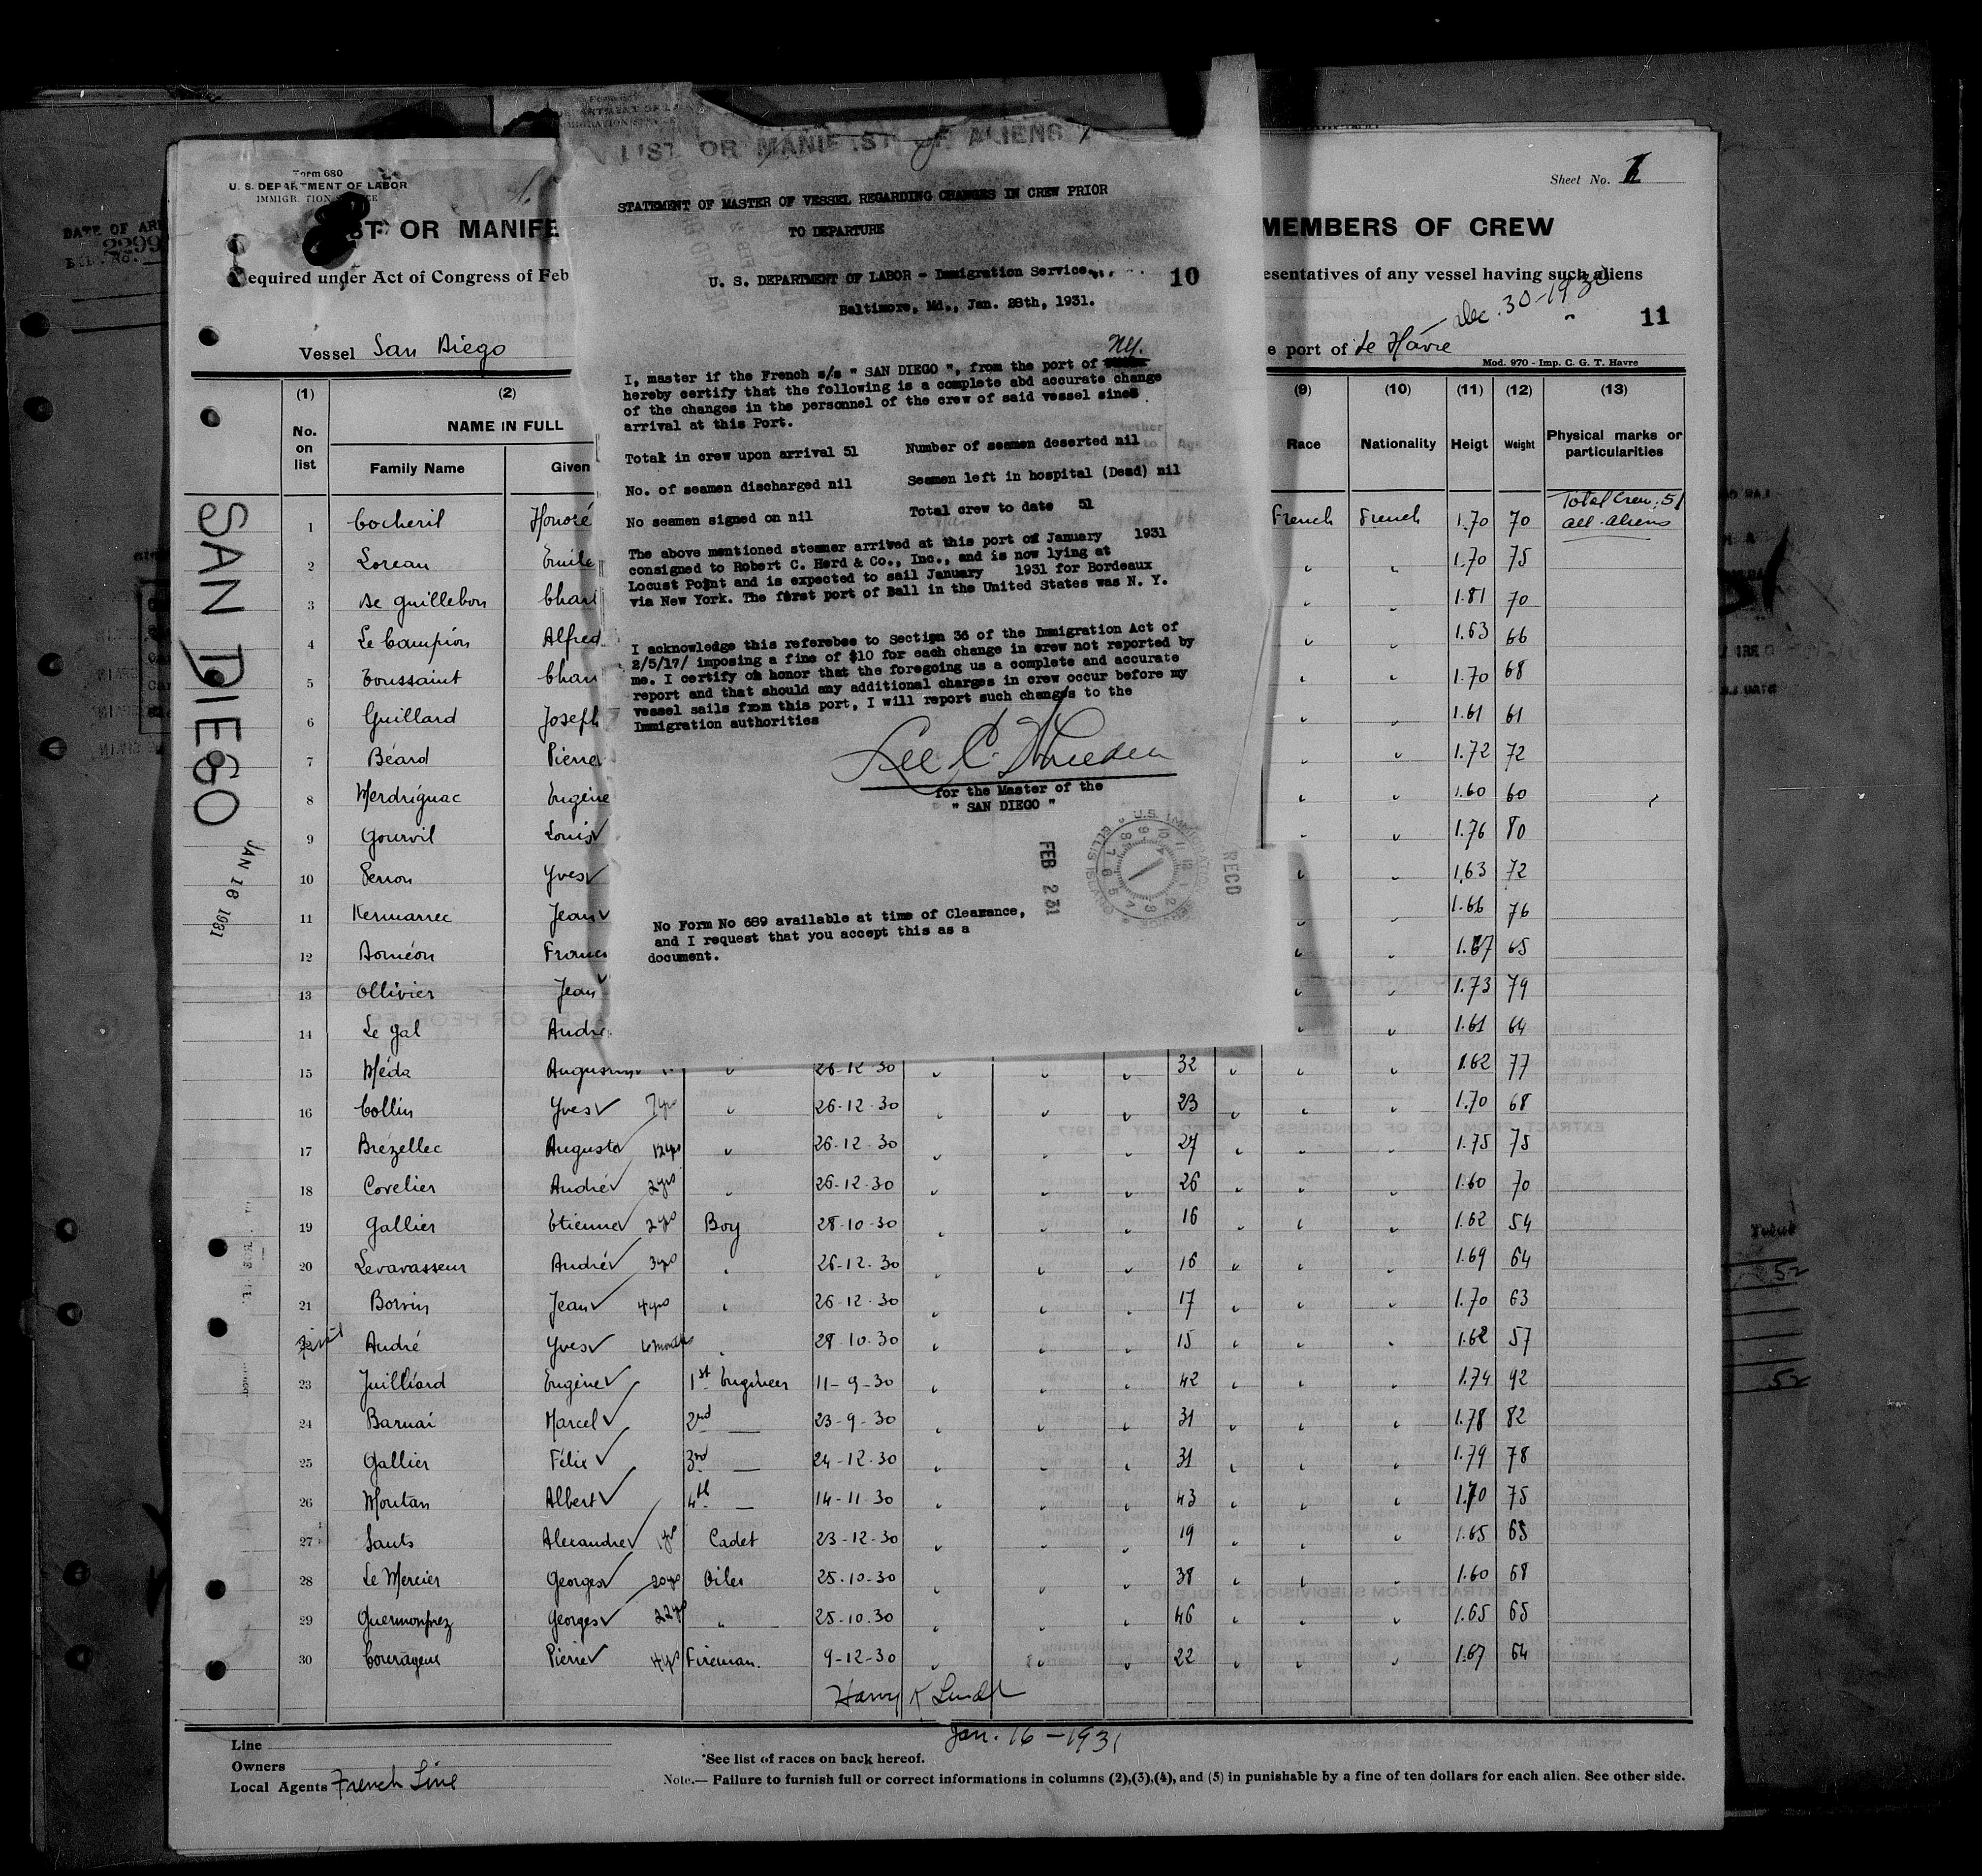 Form 680
U. S. DEPARTMENT OF LABOR
LIST OR MANIFEST OF ALIENS
Sheet No. 1
ST OR MANIFE
MEMBERS OF CREW
equired under Act of Congress of Feb
esentatives of any vessel having such aliens
Dec. 30-1930
11
Vessel San Diego
e port of Le Havre
Mod. 970 - Imp. C. G. T. Havre
STATEMENT OF MASTER OF VESSEL REGARDING CHANGES IN CREW PRIOR
TO DEPARTURE
U. S. DEPARTMENT OF LABOR - Immigration Service
10
Baltimore, Md., Jan. 28th, 1931.
NY.
I, master if the French s/s " SAN DIEGO ", from the port of
hereby certify that the following is a complete abd accurate change
of the changes in the personnel of the crew of said vessel since
arrival at this Port.
Total in crew upon arrival 51 Number of seamen deserted nil
No. of seamen discharged nil Seamen left in hospital (Dead) nil
No seamen signed on nil Total crew to date 51
The above mentioned steamer arrived at this port of January 1931
consigned to Robert C. Herd & Co., Inc., and is now lying at
Locust Point and is expected to sail January 1931 for Bordeaux
via New York. The first port of Ball in the United States was N. Y.
I acknowledge this referebce to Section 36 of the Immigration Act of
2/5/17/ imposing a fine of $10 for each change in crew not reported by
me. I certify on honor that the foregoing us a complete and accurate
report and that should any additional charges in crew occur before my
vessel sails from this port, I will report such changes to the
Immigration authorities
for the Master of the
" SAN DIEGO "
FEB 2 31
RECD
No Form No 689 available at time of Clearance,
and I request that you accept this as a
document.
SAN DIEGO
JAN 16 1931
(1) (2) (9) (10) (11) (12) (13)
No. on list
NAME IN FULL
Family Name Given
Race Nationality Heigt Weight Physical marks or particularities
Total Crew: 51
all aliens
1 Cocheril Honoré French French 1.70 70
2 Loreau Emile " " 1.70 75
3 De Guillebon Charl " " 1.81 70
4 Le Campion Alfred " " 1.63 66
5 Toussaint Char " " 1.70 68
6 Guillard Joseph " " 1.61 61
7 Béard Pierre " " 1.72 72
8 Merdrignac Eugène " " 1.60 60
9 Gourvil Louis " " 1.76 80
10 Perron Yves " " 1.63 72
11 Kermarrec Jean " " 1.66 76
12 Doméon Franc " " 1.67 65
13 Ollivier Jean " " 1.73 79
14 Le Gal André " " 1.61 64
15 Méda " 26-12 30 " " " 32 " " " 1.62 77
16 Collin Yves 7 yrs " 26-12-30 " " " 23 " " " 1.70 68
17 Brézellec Auguste 12 yrs " 26-12-30 " " " 27 " " " 1.75 75
18 Covelier André 2 yrs " 26-12-30 " " " 26 " " " 1.60 70
19 Gallier Etienne 2 yrs Boy 28-10-30 " " " 16 " " " 1.62 54
20 Levavasseur André 3 yrs " 26-12-30 " " " 16 " " " 1.69 64
21 Boivin Jean 4 yrs " 26-12-30 " " " 17 " " " 1.70 63
André Yves 6 months " 28-10-30 " " " 15 " " " 1.62 57
23 Juilliard Eugène 1st Engineer 11-9-30 " " " 42 " " " 1.74 92
24 Barnai Marcel 2nd — 23-9-30 " " " 31 " " " 1.78 82
25 Gallier Félix 3rd — 24-12-30 " " " 31 " " " 1.79 78
26 Moutan Albert 4th — 14-11-30 " " " 43 " " " 1.70 75
27 Sauts Alexandre 1 yr Cadet 23-12-30 " " " 19 " " " 1.65 65
28 Le Mercier Georges 20 yrs Oiler 25-10-30 " " " 38 " " " 1.60 68
29 Quermonprez Georges 22 yrs " 25-10-30 " " " 46 " " " 1.65 65
30 Courageux Pierre 4 yrs Fireman. 9-12-30 " " " 22 " " " 1.67 64
Jan. 16-1931
Line
Owners
Local Agents French Line
*See list of races on back hereof.
Note.— Failure to furnish full or correct informations in columns (2),(3),(4), and (5) in punishable by a fine of ten dollars for each alien. See other side.
DATE OF AR
2299
52
52